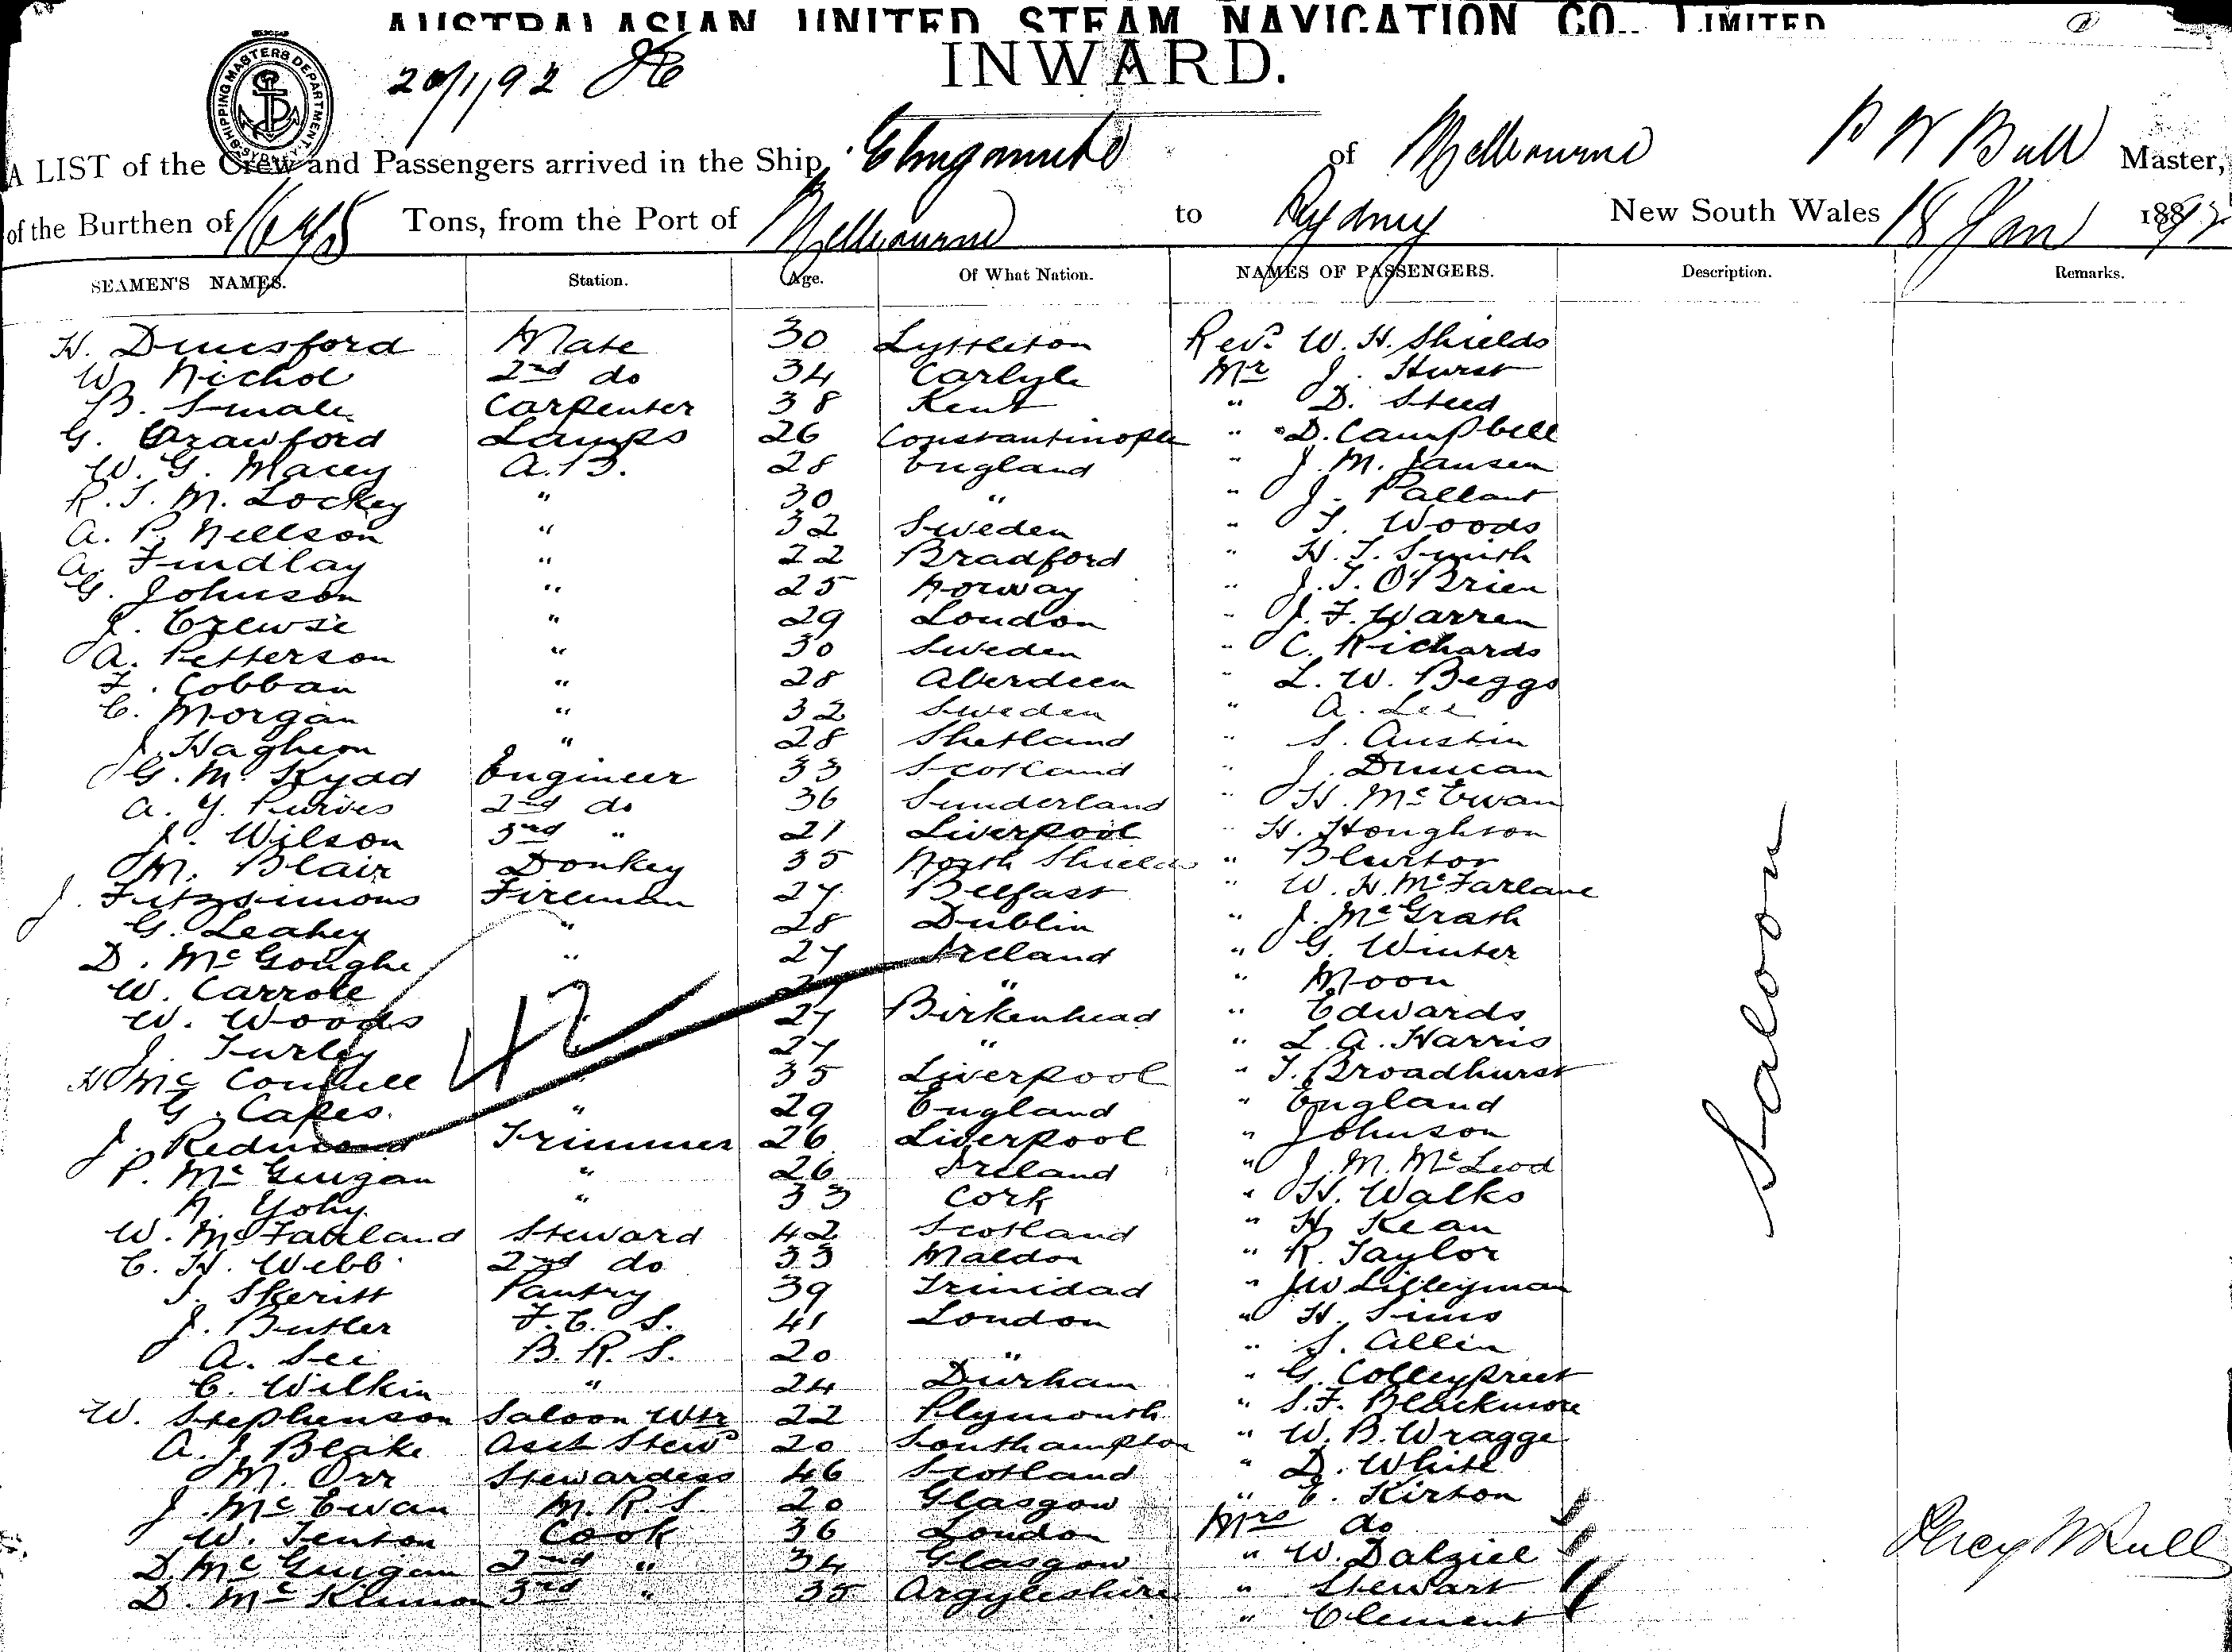 AUSTRALASIAN UNITED STEAM NAVIGATION CO., LIMITED
INWARD.
SHIPPING MASTERS DEPARTMENT
20/1/92
A LIST of the Crew and Passengers arrived in the Ship Elingamite of Melbourne P W Bull Master,
of the Burthen of 1675 Tons, from the Port of Melbourne to Sydney New South Wales 18 Jan 1892
SEAMEN'S NAMES. Station. Age. Of What Nation. NAMES OF PASSENGERS. Description. Remarks.
H. Dunsford Mate 30 Lyttleton Revd. W. H. Shields
W. Nichol 2nd do 34 Carlyle Mr J. Hurst
B. Smale Carpenter 38 Kent " D. Steed
G. Crawford Lamps 26 Constantinople " D. Campbell
W. G. Macey A.B. 28 England " J. M. Jansen
R. T. M. Lockey " 30 " " J. Pallant
A. P. Nellson " 32 Sweden " T. Woods
A. Findlay " 22 Bradford " H. T. Smith
G. Johnson " 25 Norway " J. T. O'Brien
J. Crewse " 29 London " J. F. Warren
A. Petterson " 30 Sweden " C. Richards
F. Cobban " 28 Aberdeen " L. W. Beggs
C. Morgan " 32 Sweden " A. Lee
J. Haghem " 28 Shetland " S. Austin
G. Mc Kydd Engineer 33 Scotland " J. Duncan
A. Y. Purves 2nd do 36 Sunderland " H. McEwan
J. Wilson 3rd " 21 Liverpool " H. Houghton
M. Blair Donkey 35 North Shields " Blurtor
J. Fitzsimons Fireman 27 Belfast " W. H. McFarlane
G. Leahey " 28 Dublin " J. McGrath
D. McGoughe " 27 Ireland " G. Winter
W. Carrole " " " Moon
W. Woods " 27 Birkenhead " Edwards
J. Turley 27 " " L. A. Harris
H Mc Connell " 35 Liverpool " T. Broadhurst
G. Capes. " 29 England " England
J. Redmond Trimmer 26 Liverpool " Johnson
P. McGuigan " 26 Ireland " J. M. McLeod
N. Yohy " 33 Cork " H. Walks
W. McFarland Steward 42 Scotland " H. Kean
C. H. Webb 2nd do 33 Maldon " R. Taylor
J. Skeritt Pantry 39 Trinidad " J W Lilleyman
J. Butler F. C. S. 41 London " H. Sims
A. See B. R. S. 20 " " S. Allen
C. Wilkin " 24 Durham " G. Colleypreet
W. Stephenson Saloon Wtr 22 Plymouth " S. F. Blackmore
A. J. Blake Asst Stewd 20 Southampton " W. B. Wragge
M. Orr Stewardess 46 Scotland " D. White
J McEwan M. R. S. 20 Glasgow " E. Kirton
W. Fenton Cook 36 London Mrs do
D. McGuigan 2nd " 34 Glasgow " W. Dalziel
D. McKinnon 3rd " 35 Argyleshire " Stewart
" Clement
42
Saloon
Percy W Bull